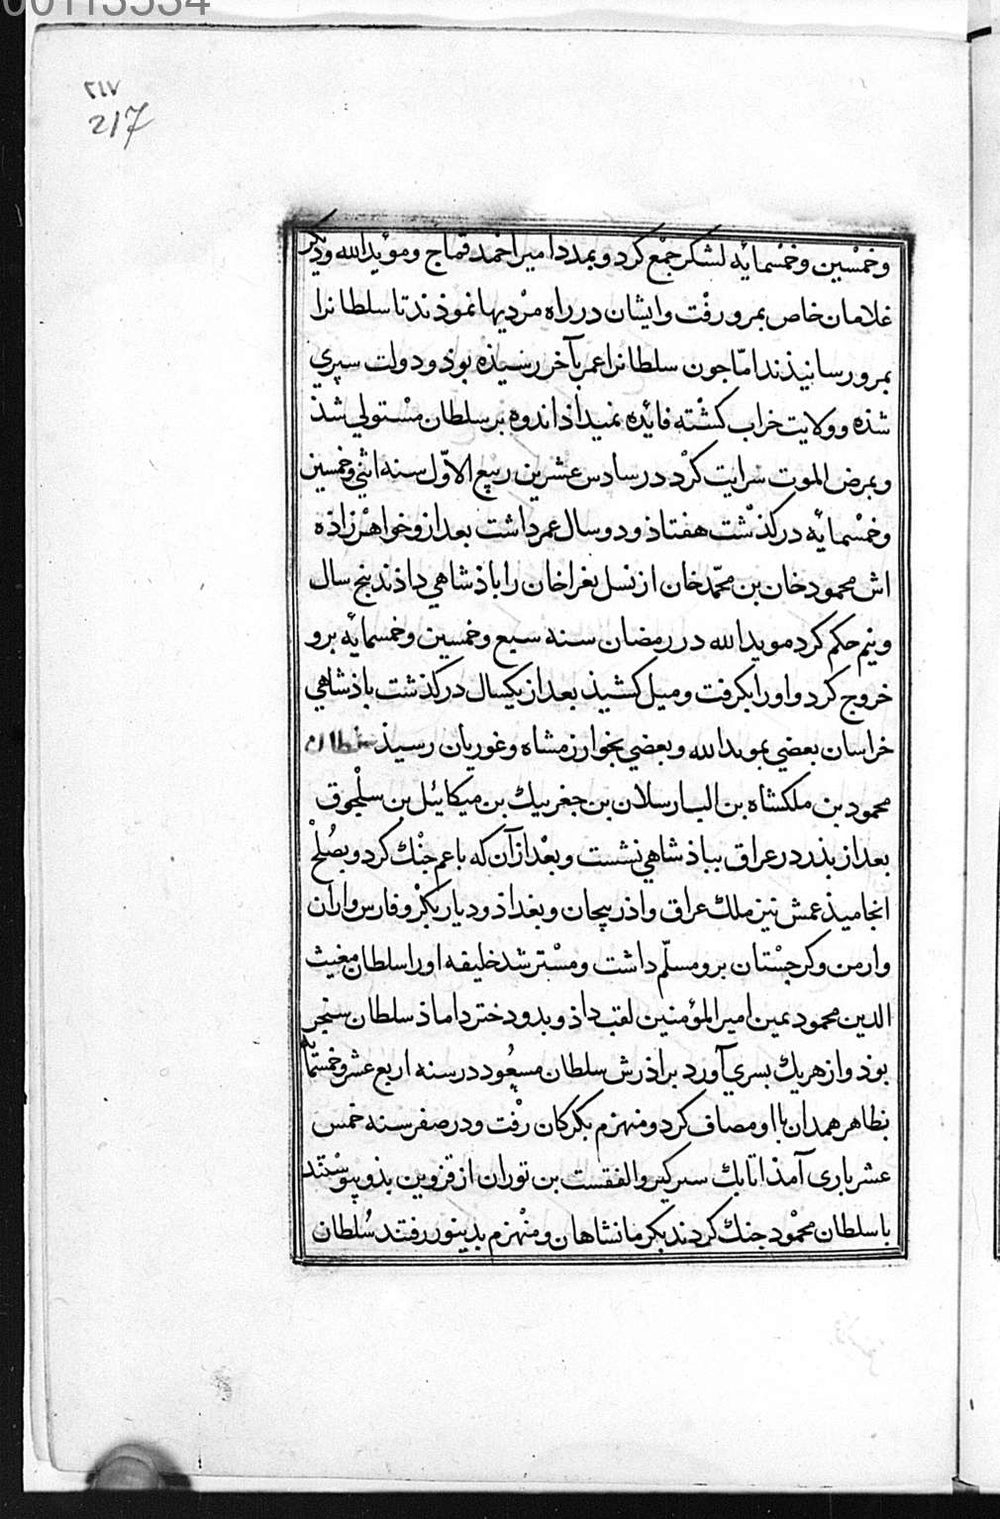 00113534
٢١٧
217
وخمسین وخمسمایه لشکر جمع کرد و بمدد امیر احمد قماج ومویدالله ودیکر
غلامان خاص بمرو رفت وایشان در راه مردیها نموذند تا سلطانرا
بمرو رسانیذند امّا جون سلطانرا عمر بآخر رسیذه بوذ و دولت سپری
شذه و ولایت خراب کشته فائده نمیداذ اندوه بر سلطان مستولی شذ
و بمرض الموت سرایت کرد در سادس عشرین ربیع الاوّل سنه اثنی وخمسین
وخمسمایه درکذشت هفتاذ و دو سال عمر داشت بعد ازو خواهر زاذه
اش محمود خان بن محمّد خان از نسل بغراخان را باذشاهی داذند پنج سال
و نیم حکم کرد مویدالله در رمضان سنه سبع وخمسین وخمسمایه برو
خروج کرد و اورا بکرفت ومیل کشیذ بعد از یکسال درکذشت باذشاهی
خراسان بعضی بمویدالله و بعضی بخوارزمشاه وغوریان رسیذ سلطان
محمود بن ملکشاه بن الب ارسلان بن جغربیك بن میکائیل بن سلجوق
بعد از بذر در عراق بباذشاهی نشست و بعد از آن که با عم جنك کرد و بصلح
انجامیذ عمش نیز ملك عراق واذربیجان و بغداذ و دیاربکر و فارس واران
وارمن وکرجستان برو مسلّم داشت ومسترشد خلیفه اورا سلطان مغیث
الدین محمود یمین امیرالمؤمنین لقب داذ و بدو دختر داماذ سلطان سنجر
بوذ و از هریك بسری آورد براذرش سلطان مسعُود در سنه اربع عشر وخمسمائه
بظاهر همدان با او مصاف کرد و منهزم بکرکان رفت و در صفر سنه خمس
عشر باری آمذ اتابك سیرکیر والفقست بن توران از قزوین بذو پیوستند
با سلطان محمود جنك کردند بکرمانشاهان و منهزم بدینور رفتند سُلطان